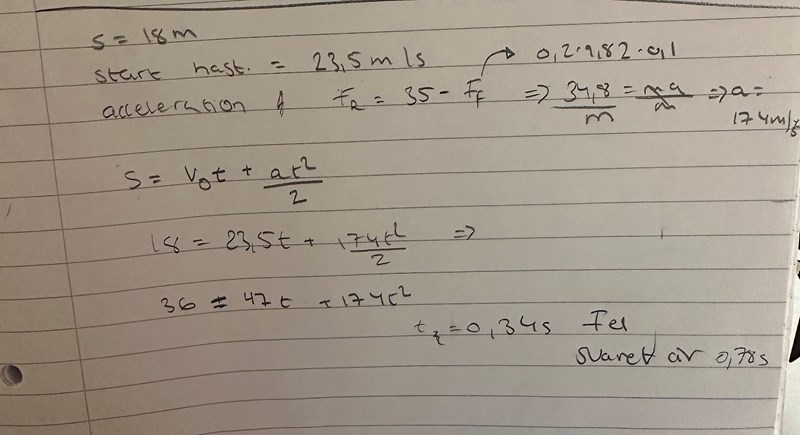 s = 18 m
start hast. = 23,5 m/s → 0,2·9,82·0,1
acceleration F_R = 35 - F_f => 34,8/m = ma/m => a = 174 m/s
s = v₀t + at²/2
18 = 23,5t + 174t²/2 =>
36 = 47t + 174t²
t₂ = 0,34s Fel
svaret är 0,78s